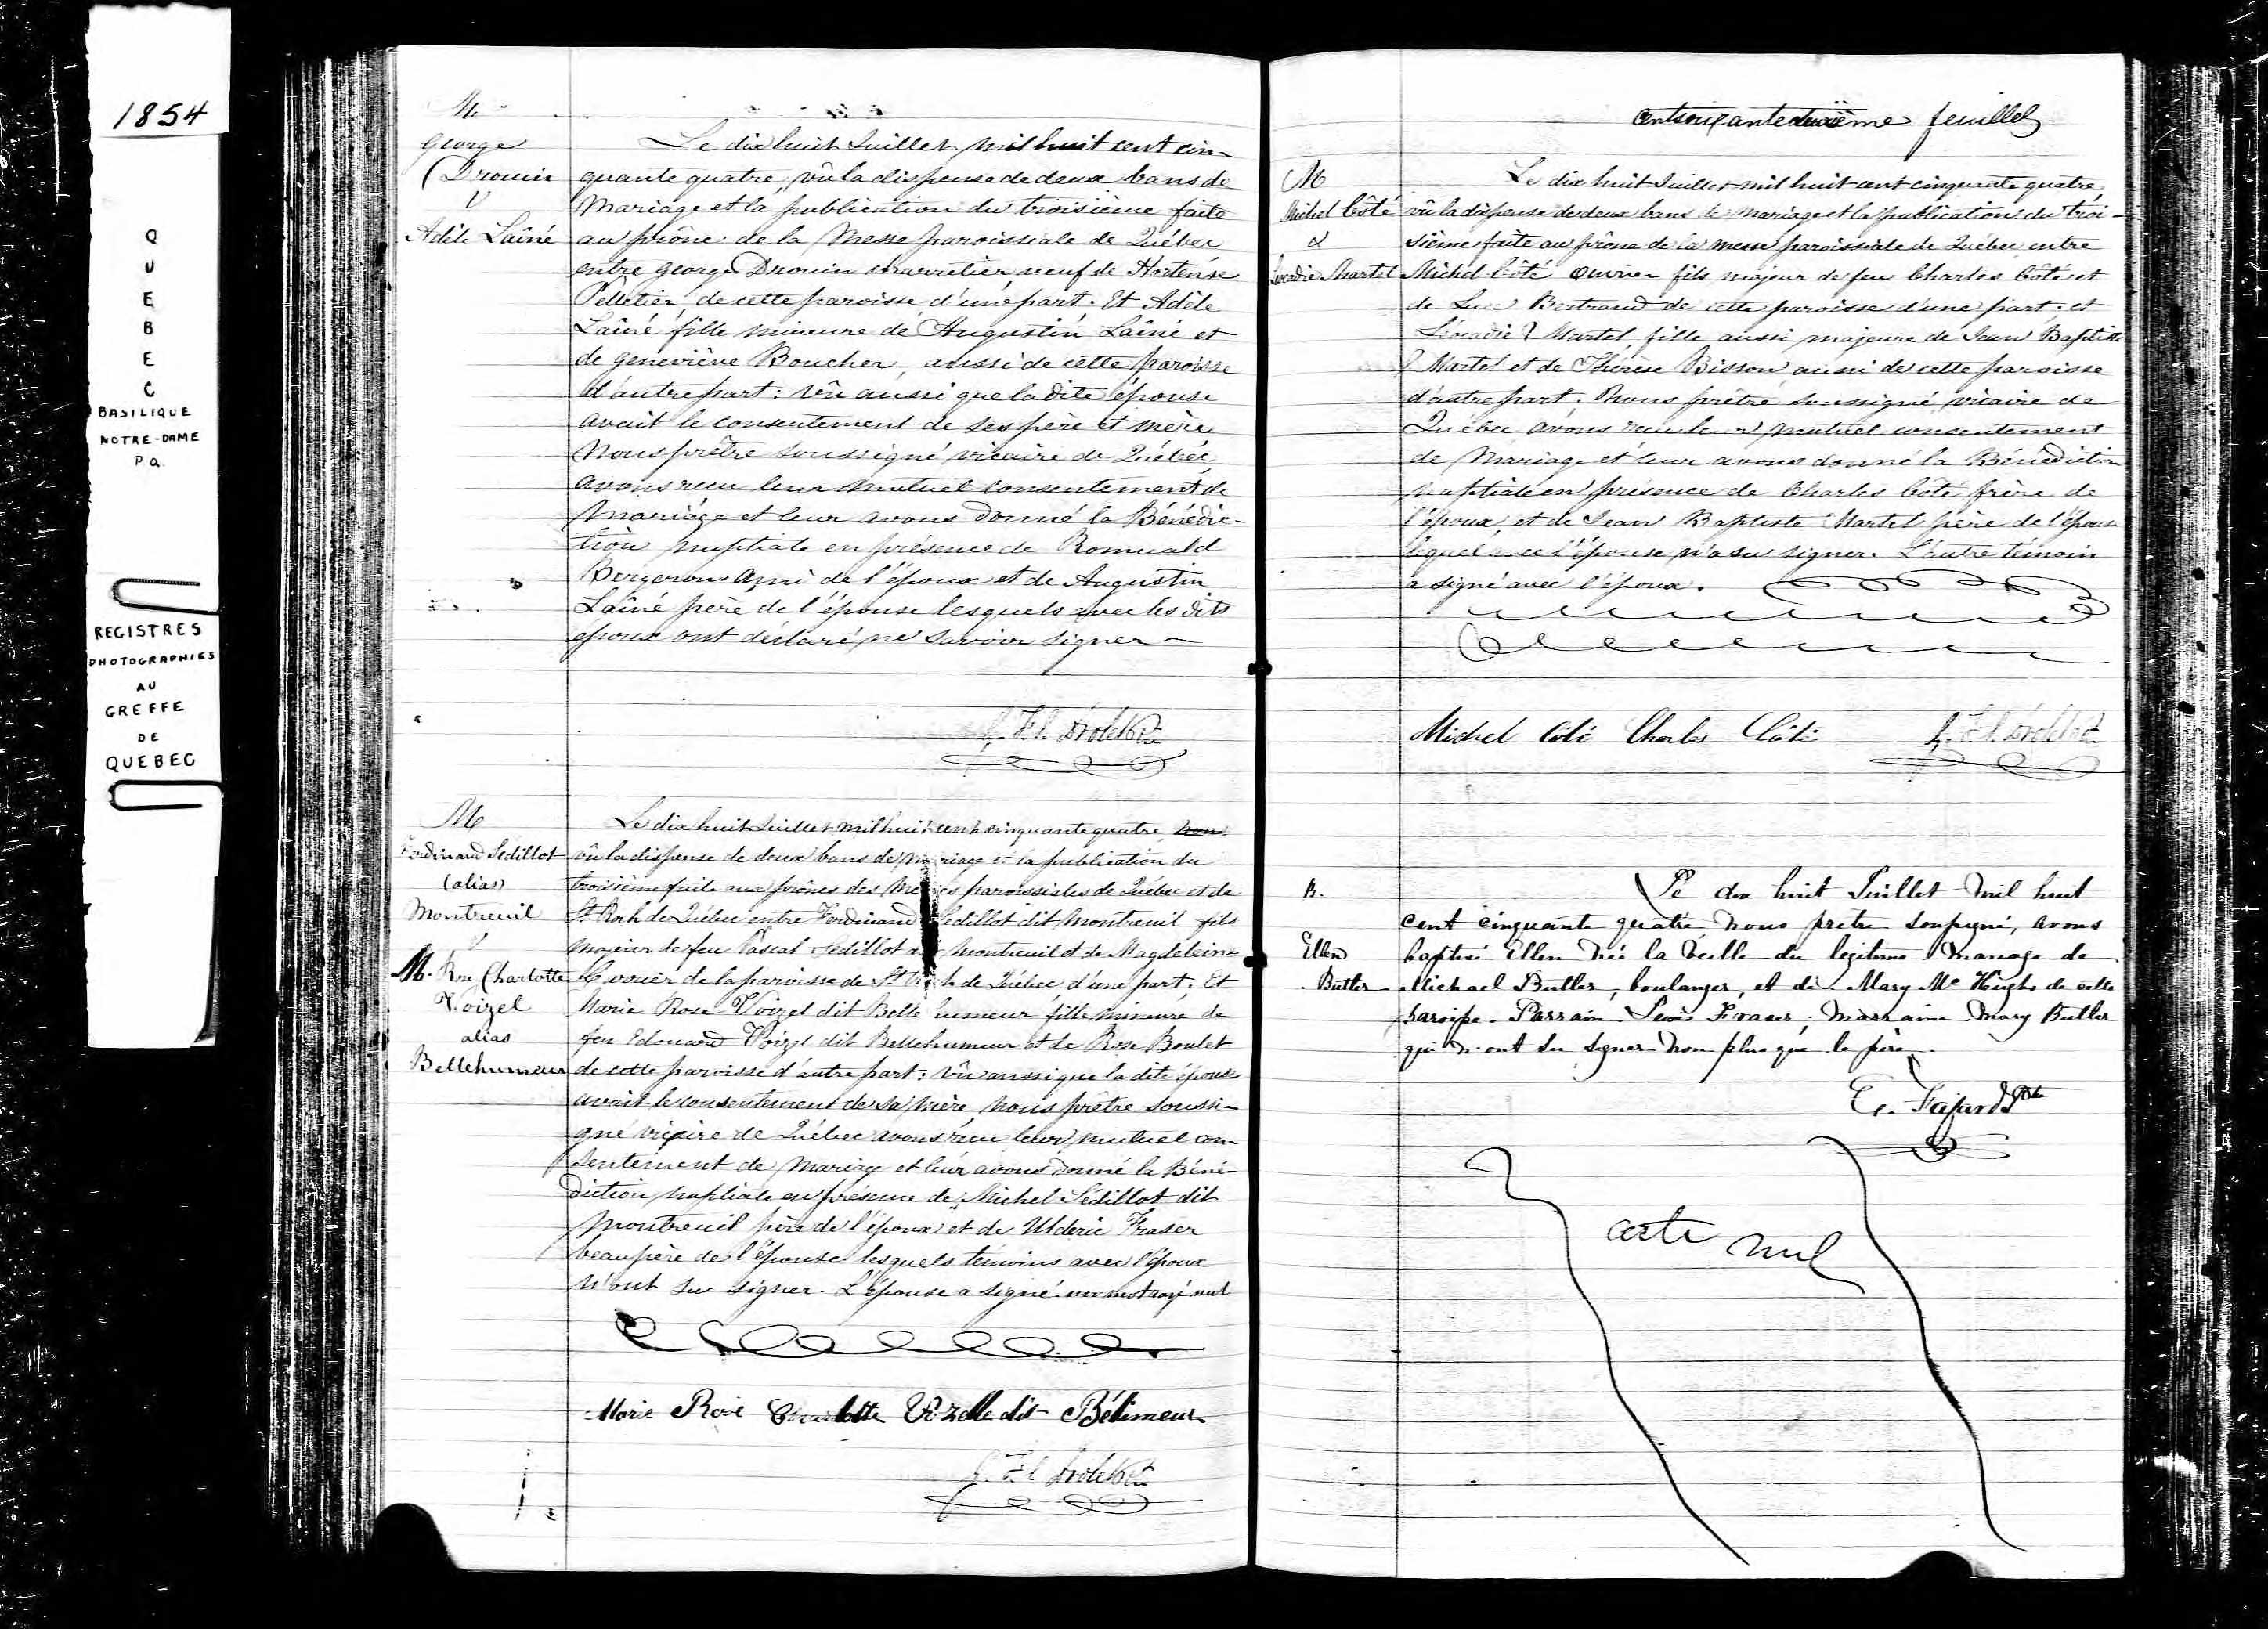 1854
Q
U
E
B
E
C
BASILIQUE
NOTRE-DAME
P.Q.
REGISTRES
PHOTOGRAPHIES
AU
GREFFE
DE
QUEBEC
M
George
Drouin
&
Adèle Lainé
Le dix huit Juillet mil huit cent cin-
quante quatre, vû la dispense de deux bans de
Mariage et la publication du troisième faite
au prône de la Messe paroissiale de Québec
entre George Drouin charretier, veuf de Hortense
Pelletier, de cette paroisse, d'une part; Et Adèle
Lainé fille mineure de Augustin Lainé et
de Geneviève Boucher, aussi de cette paroisse
d'autre part: vû aussi que la dite épouse
avait le consentement de ses père et mère
Nous prêtre soussigné vicaire de Québec
avons reçu leur mutuel consentement de
Mariage et leur avons donné la Bénédic-
tion nuptiale en présence de Romuald
Bergerons ami de l'époux et de Augustin
Lainé père de l'épouse lesquels avec les dits
époux ont déclaré ne savoir signer -
Drolet Ptre
M
Ferdinand Sedillot
(alias)
Montreuil
&
M. Rose Charlotte
Voizel
alias
Bellehumeur
Le dix huit Juillet mil huit cent cinquante quatre nous
vû la dispense de deux bans de mariage et la publication du
troisième faite aux prônes des Messes paroissiales de Québec et de
St Roch de Québec entre Ferdinand Sedillot dit Montreuil fils
majeur de feu Pascal Sedillot dit Montreuil et de Magdeleine
de la paroisse de St Roch de Québec d'une part; Et
Marie Rose Voizel dit Belle humeur fille mineure de
feu Edouard Voizel dit Bellehumeur et de Rose Boulet
de cette paroisse d'autre part: vû aussi que la dite épouse
avait le consentement de sa Mère, nous prêtre soussi-
gné vicaire de Québec avons reçu leur mutuel con-
sentement de Mariage et leur avons donné la Béné-
diction nuptiale en présence de Michel Sédillot dit
Montreuil père de l'époux et de Ulderic Fraser
beau père de l'épouse lesquels témoins avec l'époux
n'ont su signer. L'épouse a signé. un mot rayé nul
Marie Rose Charlotte Vozelle dit Bélimeur
Drolet Ptre
Cent soixante deuxième feuillet
M
Michel Côté
&
Léocadie Martel
Le dix huit Juillet mil huit cent cinquante quatre,
vû la dispense de deux bans de mariage et la publication du troi-
sième faite au prône de la messe paroissiale de Québec entre
Michel Côté ouvrier fils majeur de feu Charles Côté et
de Luce Bertrand de cette paroisse d'une part; et
Léocadie Martel, fille aussi majeure de Jean Baptiste
Martel et de Thérèse Bisson aussi de cette paroisse
d'autre part. Nous prêtre soussigné, vicaire de
Québec avons reçu leur mutuel consentement
de Mariage et leur avons donné la Bénédiction
nuptiale en présence de Charles Côté frère de
l'époux, et de Jean Baptiste Martel père de l'épouse
lequel avec l'épouse n'a su signer. L'autre témoin
a signé avec l'époux.
Michel Coté Charles Côté Drolet Ptre
B.
Ellen
Butler
Le dix huit Juillet mil huit
cent cinquante quatre, nous pretre soussigné, avons
baptisé Ellen née la veille du legitime mariage de
Michael Butler, boulanger, et de Mary Mc Hugh de cette
paroisse. Parrain Fraser; Marraine Mary Butler
qui n'ont su signer non plus que le père.
Ptre
acte
nul